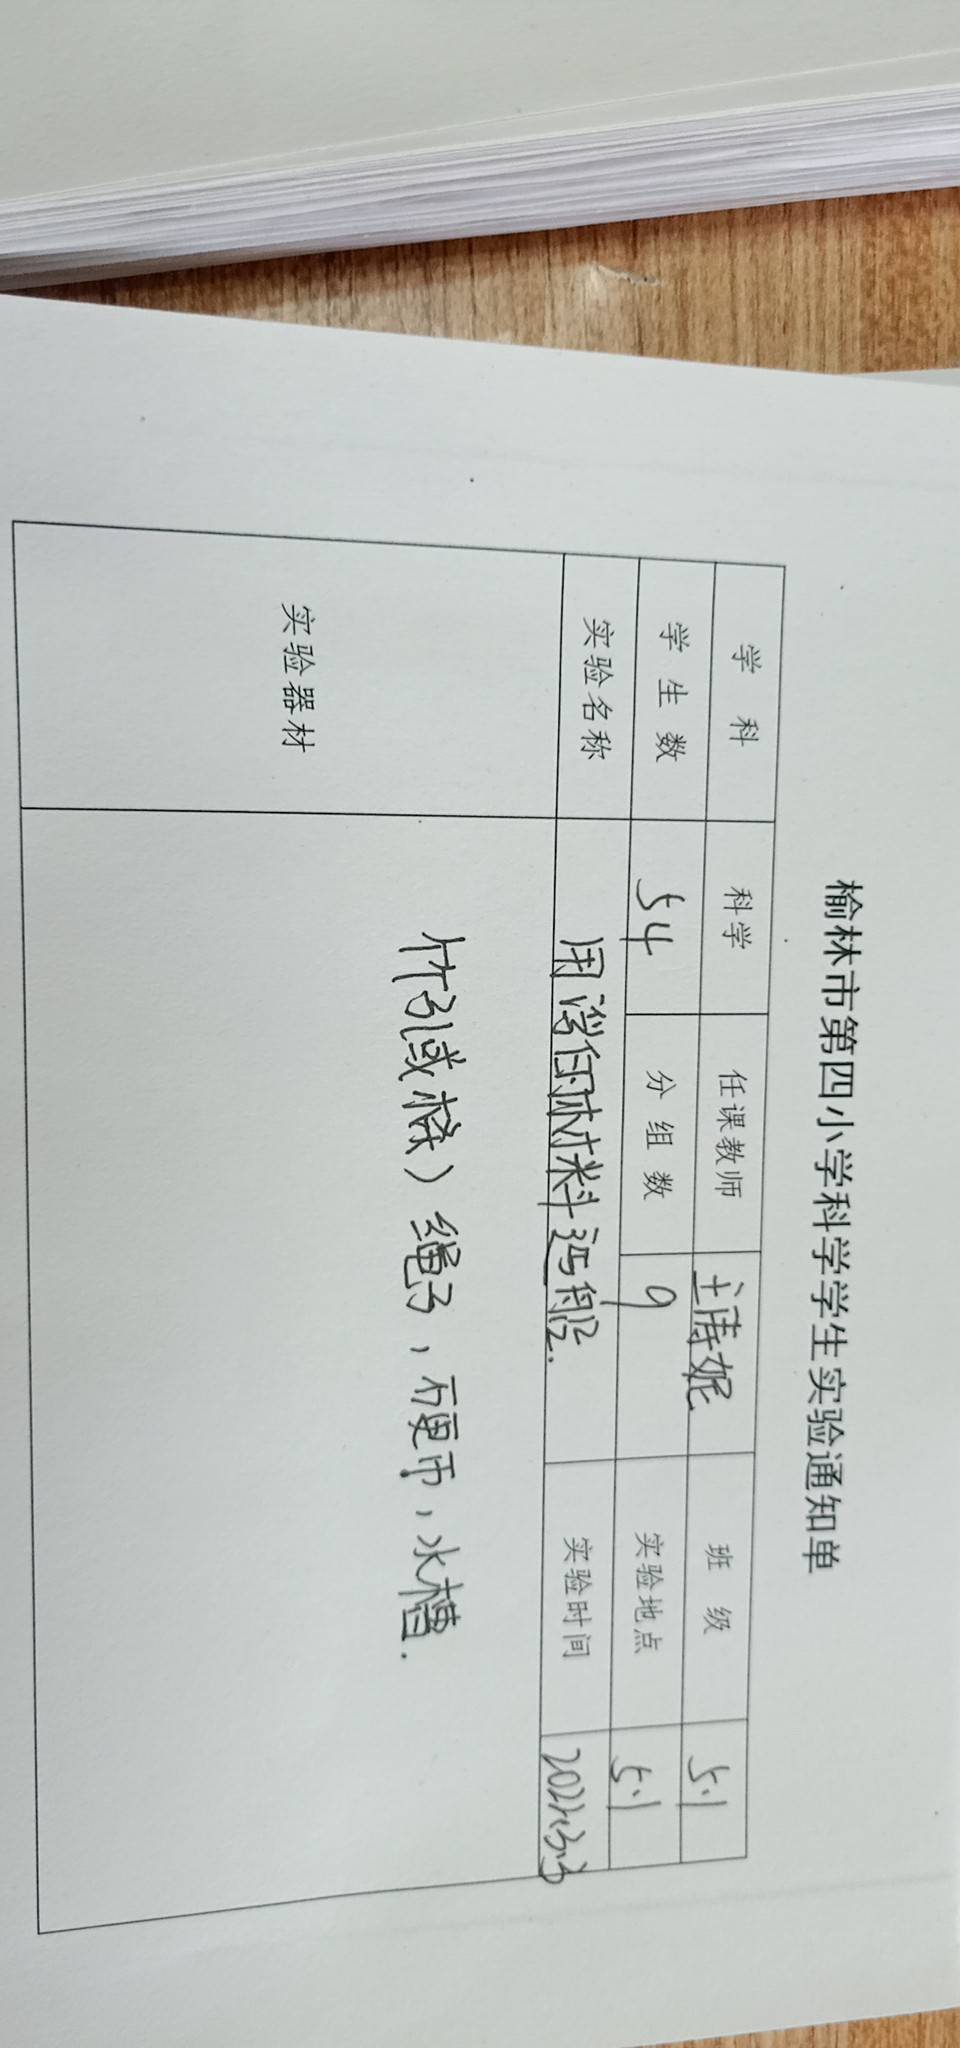 榆林市第四小学科学学生实验通知单
学 科 科学 任课教师 王诗妮 班 级 5.1
学 生 数 54 分 组 数 9 实验地点 5.1
实验名称 用浮的材料造船. 实验时间
实验器材 竹子(或橡) 绳子，硬币，水槽.